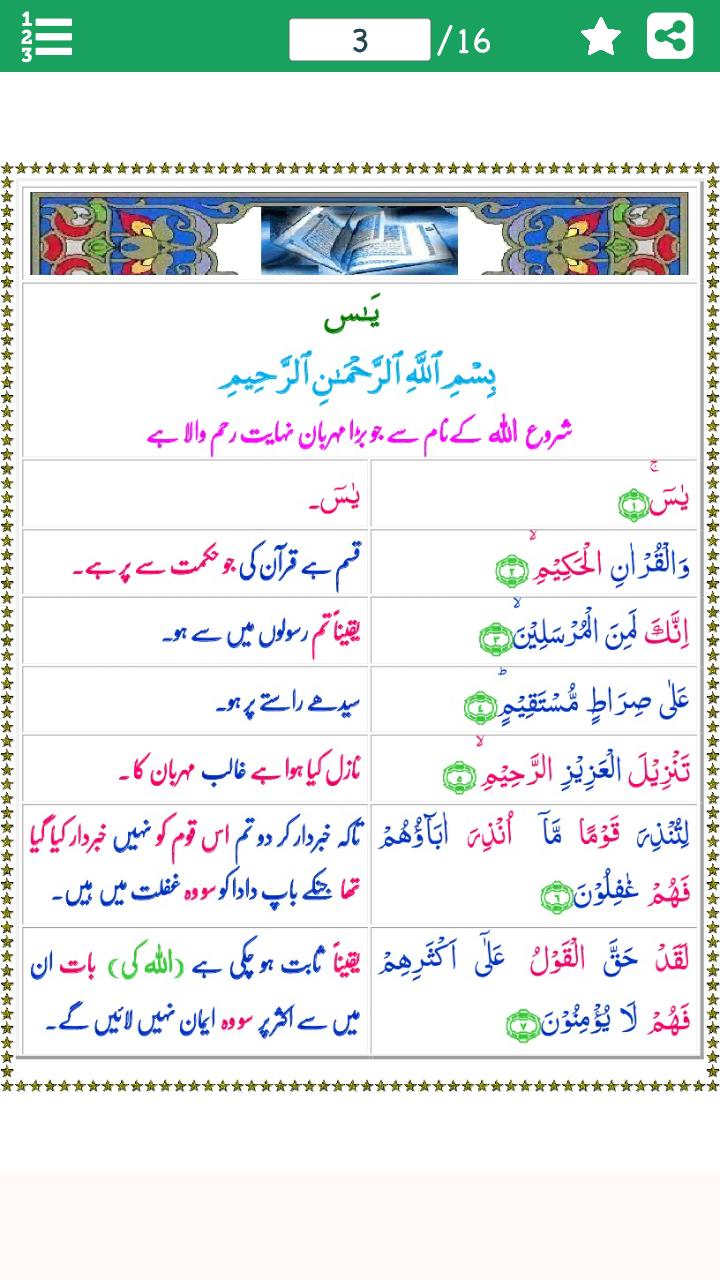 1
2
3
3 /16
یَٰسٓ
بِسْمِ ٱللَّهِ ٱلرَّحْمَٰنِ ٱلرَّحِيمِ
شروع الله کے نام سے جو بڑا مہربان نہایت رحم والا ہے
یٰسٓ ۚ﴿۱﴾
یٰسٓ۔
وَالْقُرْاٰنِ الْحَكِیْمِ ۙ﴿۲﴾
قسم ہے قرآن کی جو حکمت سے پر ہے۔
اِنَّكَ لَمِنَ الْمُرْسَلِیْنَ ۙ﴿۳﴾
یقیناً تم رسولوں میں سے ہو۔
عَلٰی صِرَاطٍ مُّسْتَقِیْمٍ ؕ﴿۴﴾
سیدھے راستے پر ہو۔
تَنْزِیْلَ الْعَزِیْزِ الرَّحِیْمِ ۙ﴿۵﴾
نازل کیا ہوا ہے غالب مہربان کا۔
لِتُنْذِرَ قَوْمًا مَّاۤ اُنْذِرَ اٰبَآؤُهُمْ
فَهُمْ غٰفِلُوْنَ ﴿۶﴾
تاکہ خبردار کر دو تم اس قوم کو نہیں خبردار کیا گیا
تھا جنکے باپ دادا کو سو وہ غفلت میں ہیں۔
لَقَدْ حَقَّ الْقَوْلُ عَلٰۤی اَكْثَرِهِمْ
فَهُمْ لَا یُؤْمِنُوْنَ ﴿۷﴾
یقیناً ثابت ہو چکی ہے (اللہ کی) بات ان
میں سے اکثر پر سو وہ ایمان نہیں لائیں گے۔